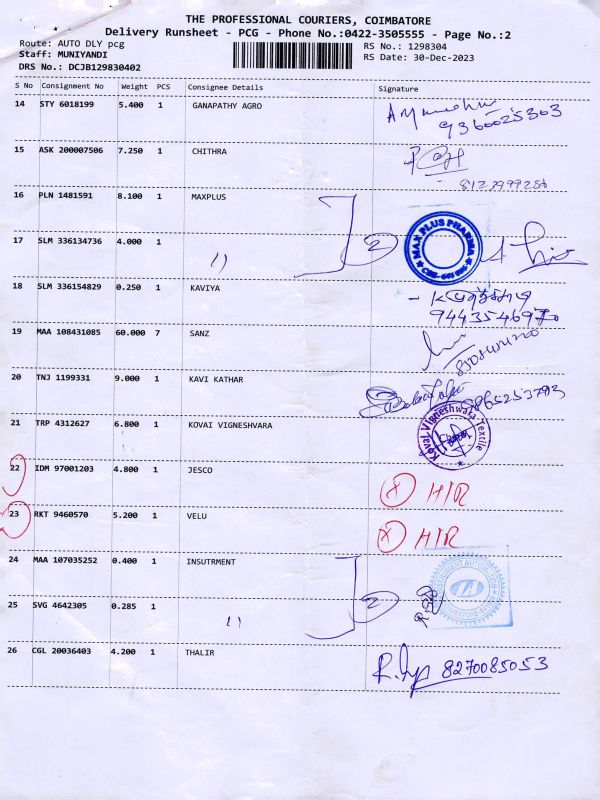 THE PROFESSIONAL COURIERS, COIMBATORE
Delivery Runsheet - PCG - Phone No.:0422-3505555 - Page No.:2
Route: AUTO DLY pcg
RS No.: 1298304
Staff: MUNIYANDI
RS Date: 30-Dec-2023
DRS No.: DCJB129830402
S No Consignment No Weight PCS Consignee Details Signature
14 STY 6018199 5.400 1 GANAPATHY AGRO
9360025303
15 ASK 200007506 7.250 1 CHITHRA
8127999286
16 PLN 1481591 8.100 1 MAXPLUS
2
MAX PLUS PHARMA
17 SLM 336134736 4.000 1
11
18 SLM 336154829 0.250 1 KAVIYA
9443546970
19 MAA 108431085 60.000 7 SANZ
20 TNJ 1199331 9.000 1 KAVI KATHAR
9865253793
21 TRP 4312627 6.800 1 KOVAI VIGNESHVARA
Kovai Vigneshwara Textile
22 IDM 97001203 4.800 1 JESCO
X H/R
23 RKT 9460570 5.200 1 VELU
X H/R
24 MAA 107035252 0.400 1 INSUTRMENT
2
25 SVG 4642305 0.285 1
11
26 CGL 20036403 4.200 1 THALIR
8270085053